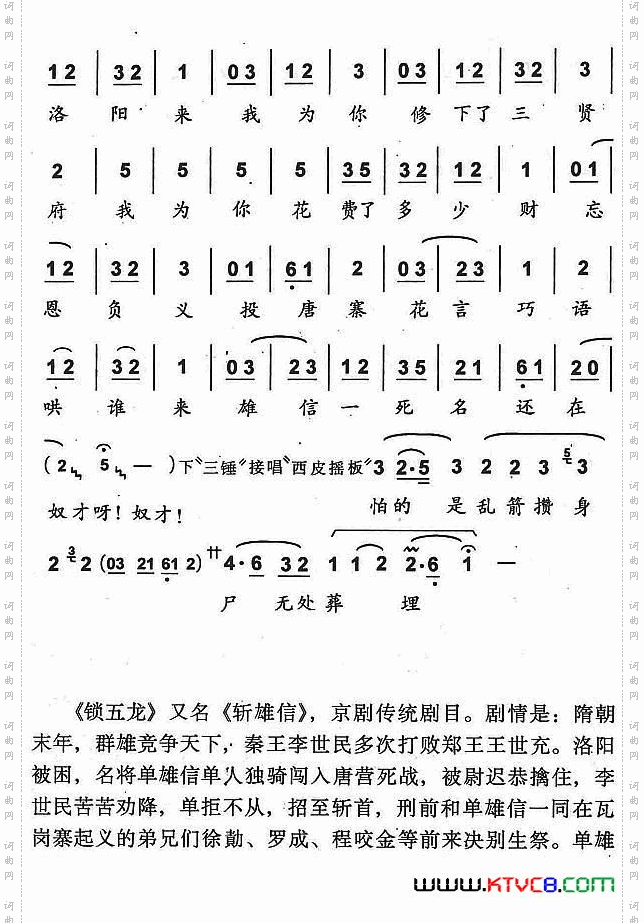 12 | 32 | 1 | 03 | 12 | 3 | 03 | 12 | 32 | 3
洛 阳 来 我 为 你 修 下了 三 贤
2 | 5 | 5 | 5 | 5 | 35 | 32 | 12 | 1 | 01
府 我 为 你 花 费了 多 少 财 忘
12 | 32 | 3 | 01 | 61 | 2 | 03 | 23 | 1 | 2
恩 负 义 投 唐 寨 花 言 巧 语
12 | 32 | 1 | 03 | 23 | 12 | 35 | 21 | 61 | 20
哄 谁 来 雄 信 一 死 名 还 在
(2 5 —)下“三锤”接唱“西皮摇板”3 2·5 3 2 2 3 5 3
奴才呀!奴才! 怕的 是乱箭攒身
2 3 2 (03 21 61 2) 廿 4·6 32 1 1 2 2·6 1 —
尸 无处葬 埋
《锁五龙》又名《斩雄信》,京剧传统剧目。剧情是:隋朝
末年,群雄竞争天下,秦王李世民多次打败郑王王世充。洛阳
被困,名将单雄信单人独骑闯入唐营死战,被尉迟恭擒住,李
世民苦苦劝降,单拒不从,招至斩首,刑前和单雄信一同在瓦
岗寨起义的弟兄们徐勣、罗成、程咬金等前来决别生祭。单雄
www.KTVC8.com
词曲网